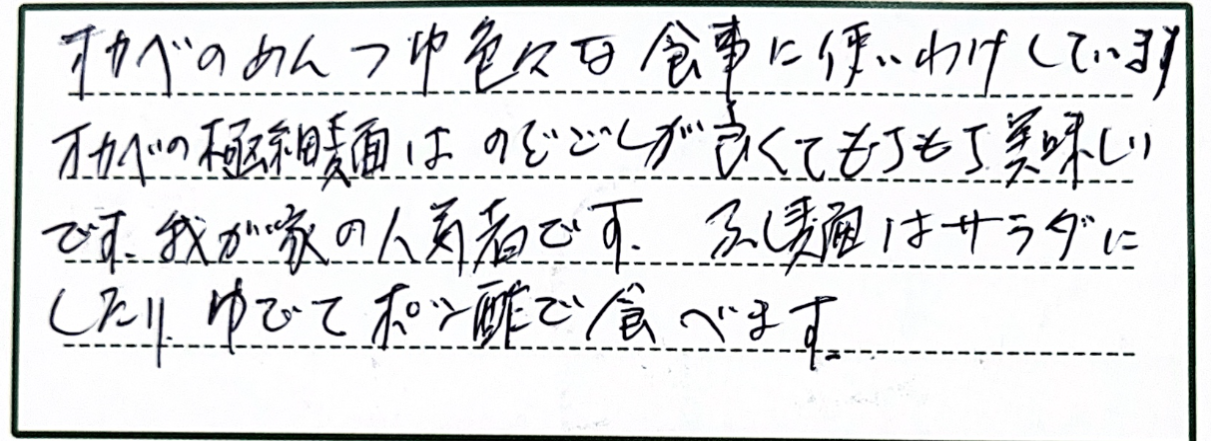 オカベのめんつゆ色々な食事に使いわけしています
オカベの極細麺はのどごしが良くてもちもち美味しい
です。我が家の人気者です。ふし麺はサラダに
したり、ゆでてポン酢で食べます。